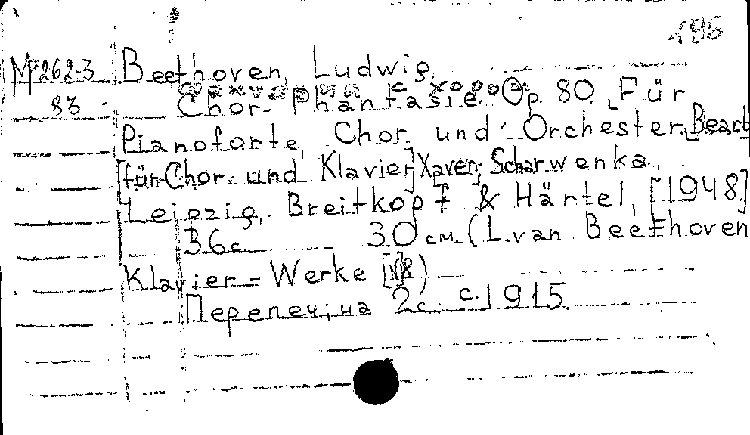 195
М⁰262-3 Beethoven, Ludwig.
83 Фантазия с хором
Chor-Phantasie. Op 80. Für
Pianoforte, Chor und Orchester. [Bearb
für Chor und Klavier] Xaver Scharwenka.
Leipzig, Breitkopf & Härtel, [1948]
36с. 30 см. (L. van Beethoven
Klavier-Werke)
Перепеч. на 2с. с. 1915